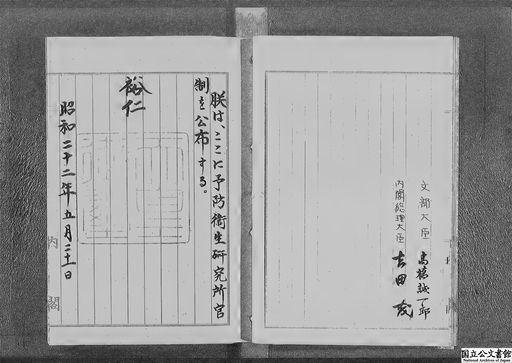 文部大臣 高橋誠一郎
内閣総理大臣 吉田茂
朕は、ここに予防衛生研究所官
制を公布する。
裕仁
昭和二十二年五月二十一日
内閣
国立公文書館
National Archives of Japan